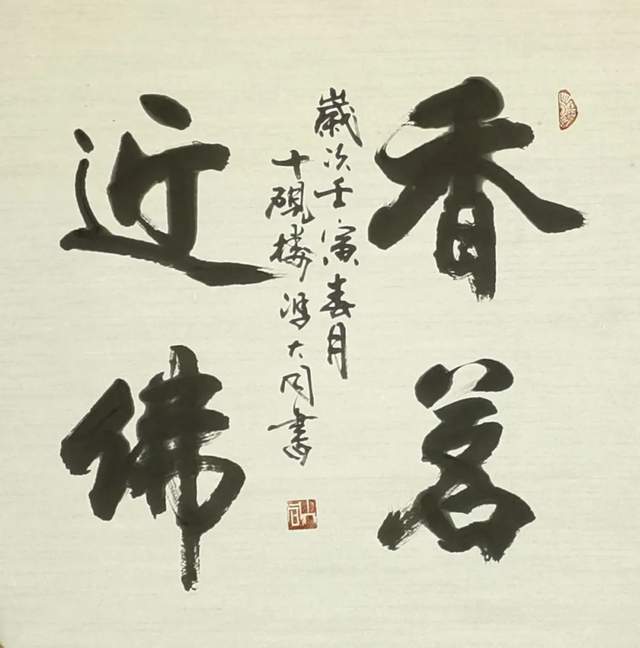 香茗
歲次壬寅春月
十硯樓馮大同書
近佛